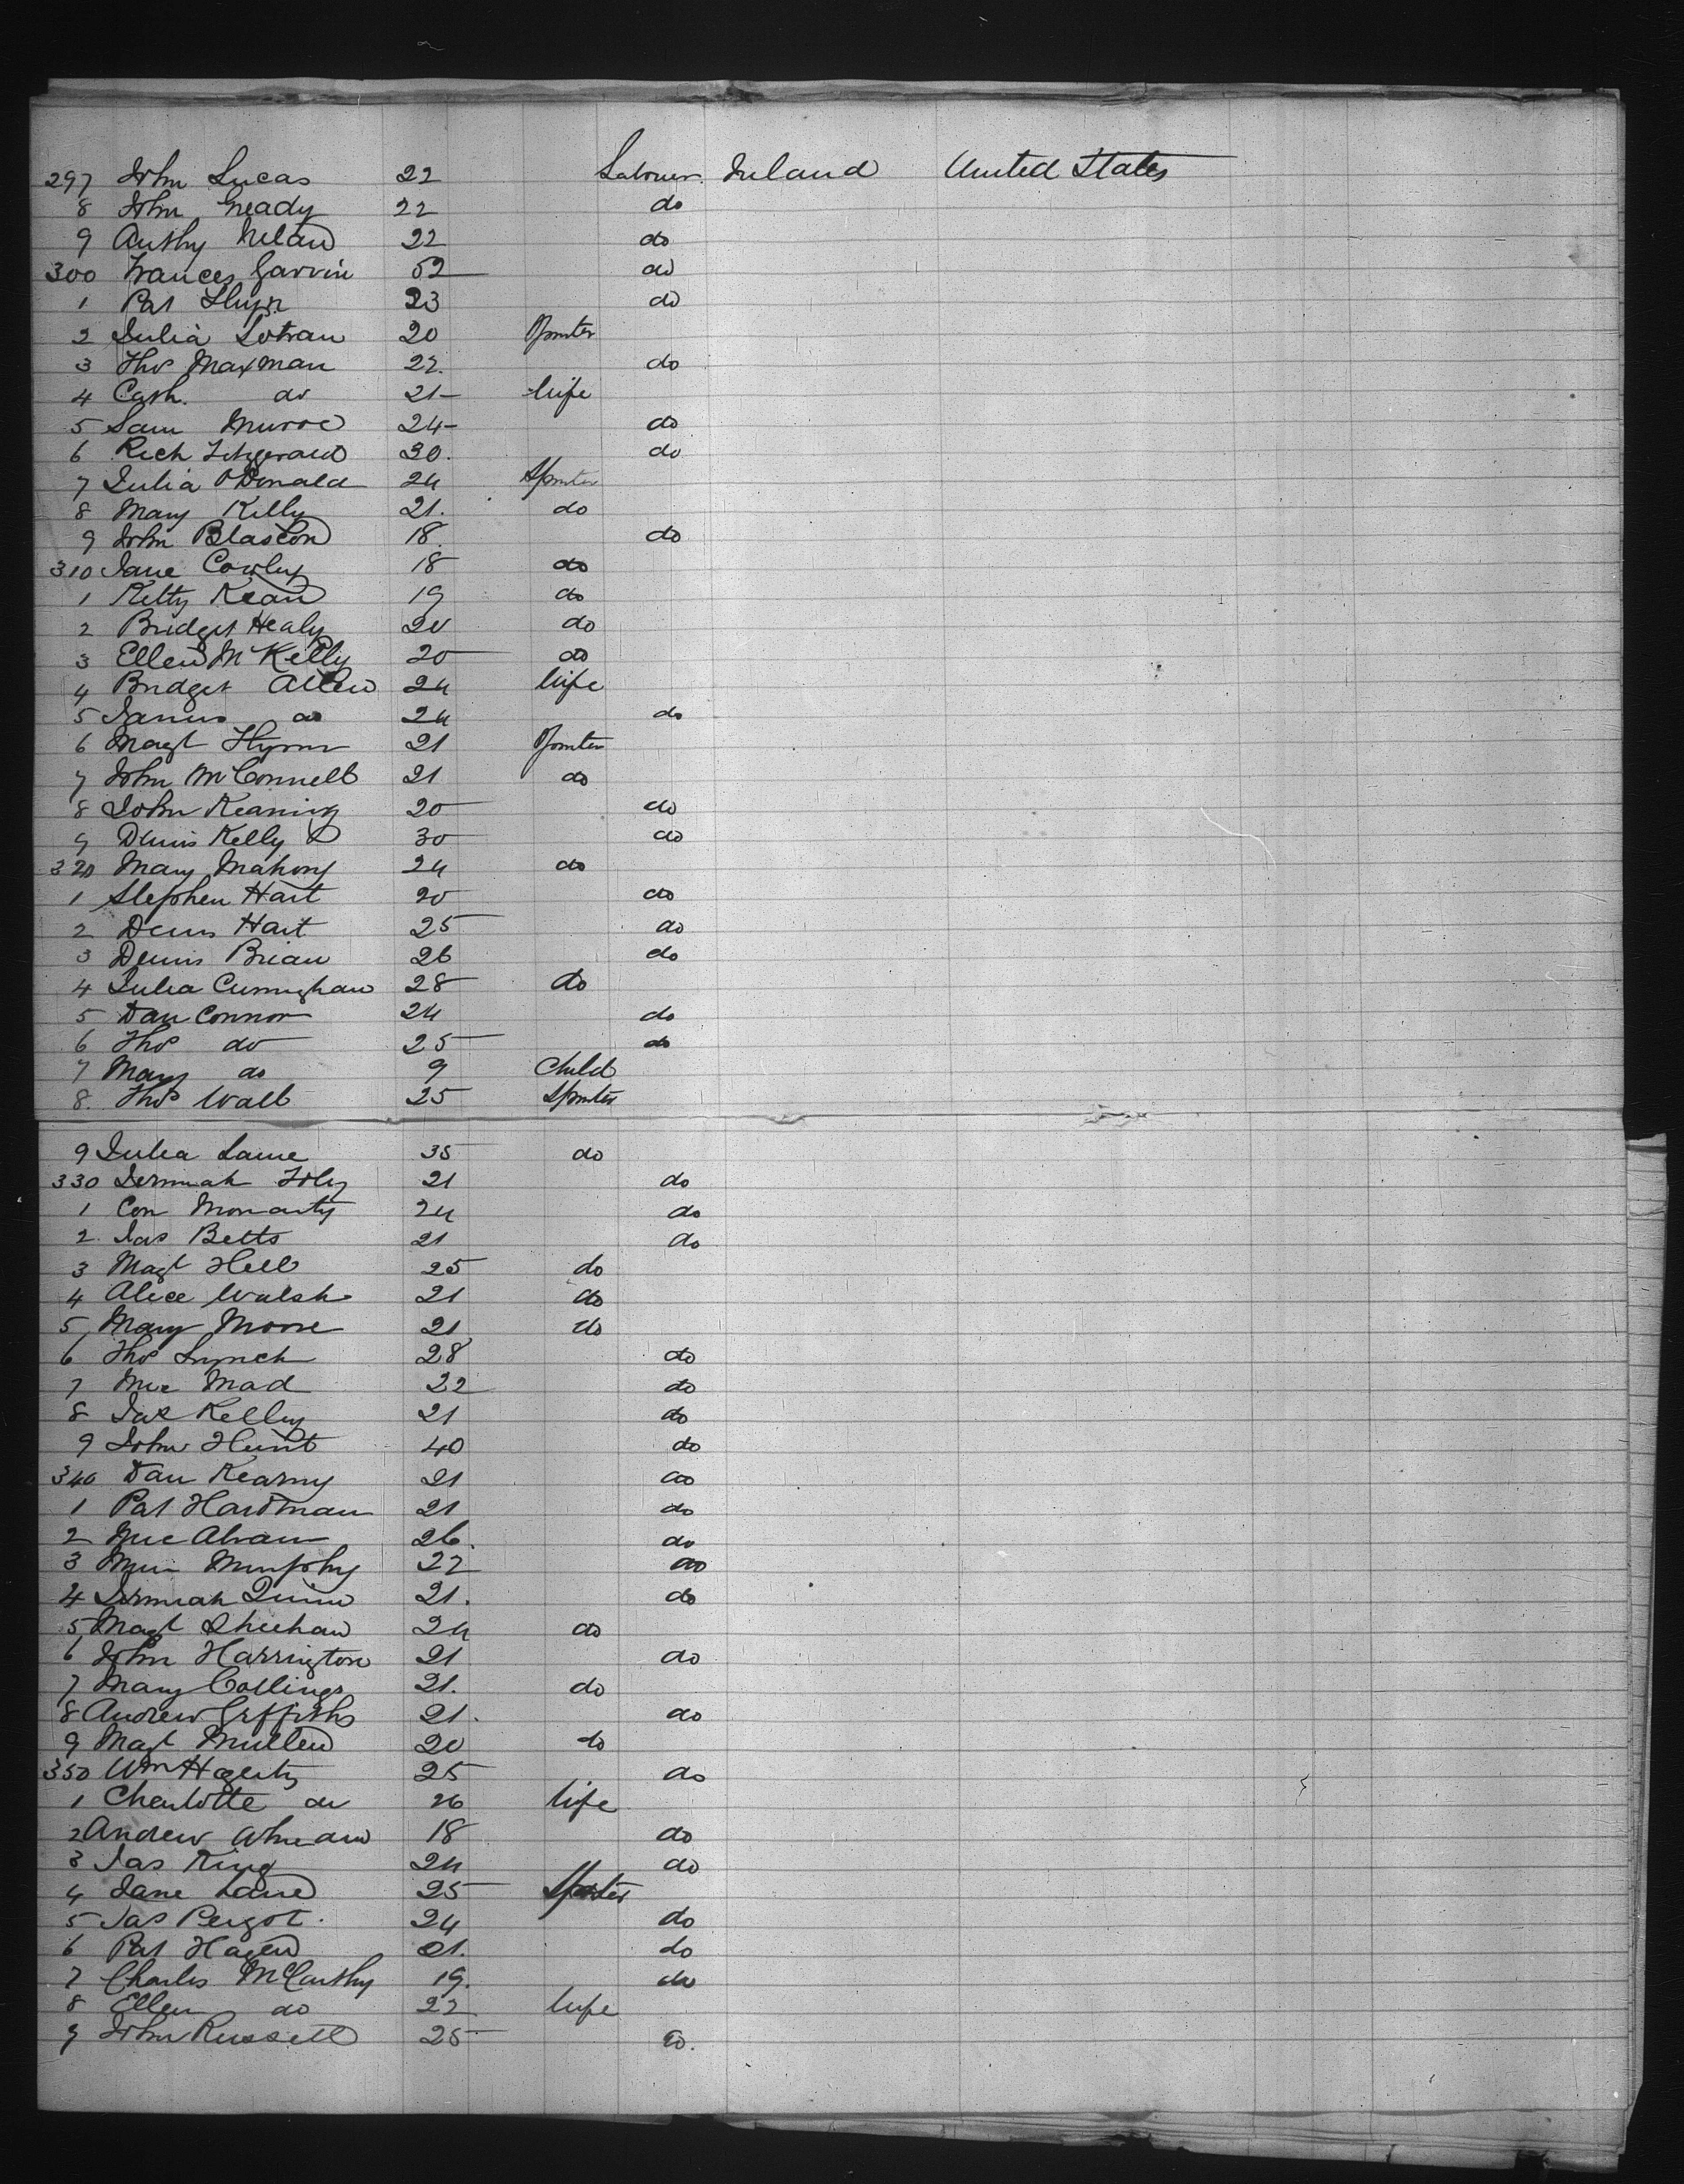 297 John Lucas 22 Labourer Ireland United States
8 John Gready 22 do
9 Anthy 22 do
300 Frances Garvin 52 do
1 Pat Flynn 23 do
2 Julia 20 Spinster
3 Thos Maxman 22. do
4 Cath. do 21 Wife
5 Sam Munroe 24 do
6 Rich Fitzgerald 30. do
7 Julia O'Donald 24 Spinster
8 Mary Kelly 21. do
9 John 18. do
310 Jane Cowley 18 do
1 Kitty Kean 19 do
2 Bridget Healy 20 do
3 Ellen McKelly 20 do
4 Bridget Allen 24 Wife
5 James do 24 do
6 Magt 21 Spinster
7 John McConnell 21 do
8 John 20 do
9 Dennis Kelly 30 do
320 Mary Mahony 24 do
1 Stephen Hart 20 do
2 Denis Hart 25 do
3 Dennis Brian 26 do
4 Julia Cuninghan 28 do
5 Dan Connor 24 do
6 Thos do 25 do
7 Mary do 9 Child
8. Thos Wall 25 Spinster
9 Julia 35 do
330 Jermiah Foley 21 do
1 Con Moriarty 24 do
2. Jas Betts 21 do
3 Magt Hill 25 do
4 Alice Walsh 21 do
5 Mary Moore 21 do
6 Thos Lynch 28 do
7 Mic Mad 22 do
8 Jas Kelley 21 do
9 John Hunt 40 do
340 Dan Kearny 21 do
1 Pat Hardman 21 do
2 Mic 26. do
3 Murphy 22 do
4 Jermiah Quinn 21. do
5 Magt Sheehan 24 do
6 John Harrington 21 do
7 Mary Collings 21. do
8 Andrew Griffiths 21. do
9 Magt Mullen 20 do
350 Wm Hagerty 25 do
1 Charlotte do 26 Wife
2 Andrew 18 do
3 Jas King 24 do
4 Jane 25 Spinster
5 Jas 24 do
6 Pat Hagen 21. do
7 Charles McCarthy 19. do
8 Ellen do 22 Wife
9 John Russell 25 do.